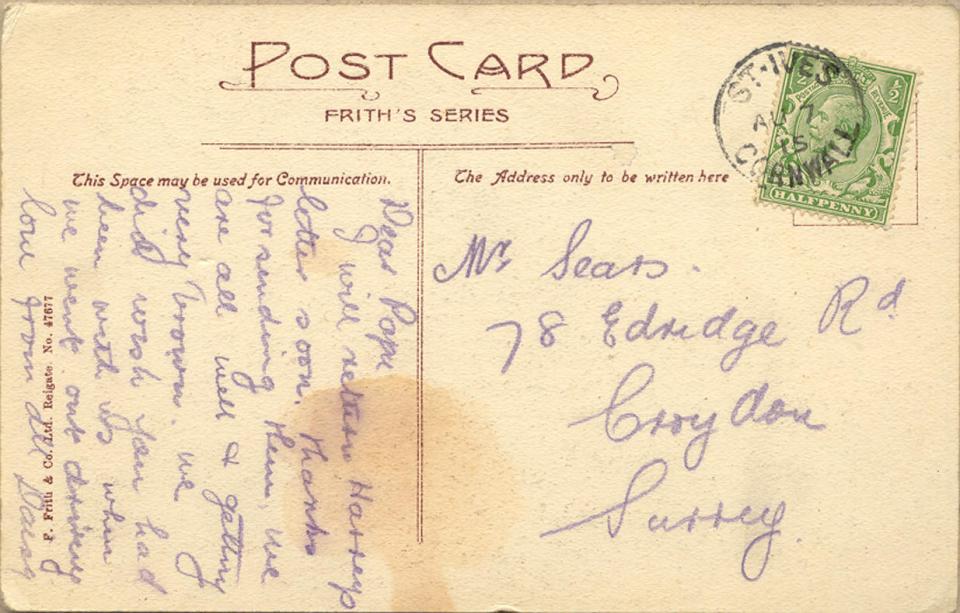 POST CARD
FRITH'S SERIES
This Space may be used for Communication.
The Address only to be written here
ST·IVES
AU 7
15
CORNWALL
½
HALFPENNY
Dear Pope
I will return Harreys
letter soon. Thanks
for sending them, we
are all well & getting
very brown. we
did wish you had
been with us when
we went out driving
love from all Daisy
Mr Sears.
78 Edridge Rd
Croydon
Surrey.
F. Frith & Co. Ltd. Reigate. No. 47677